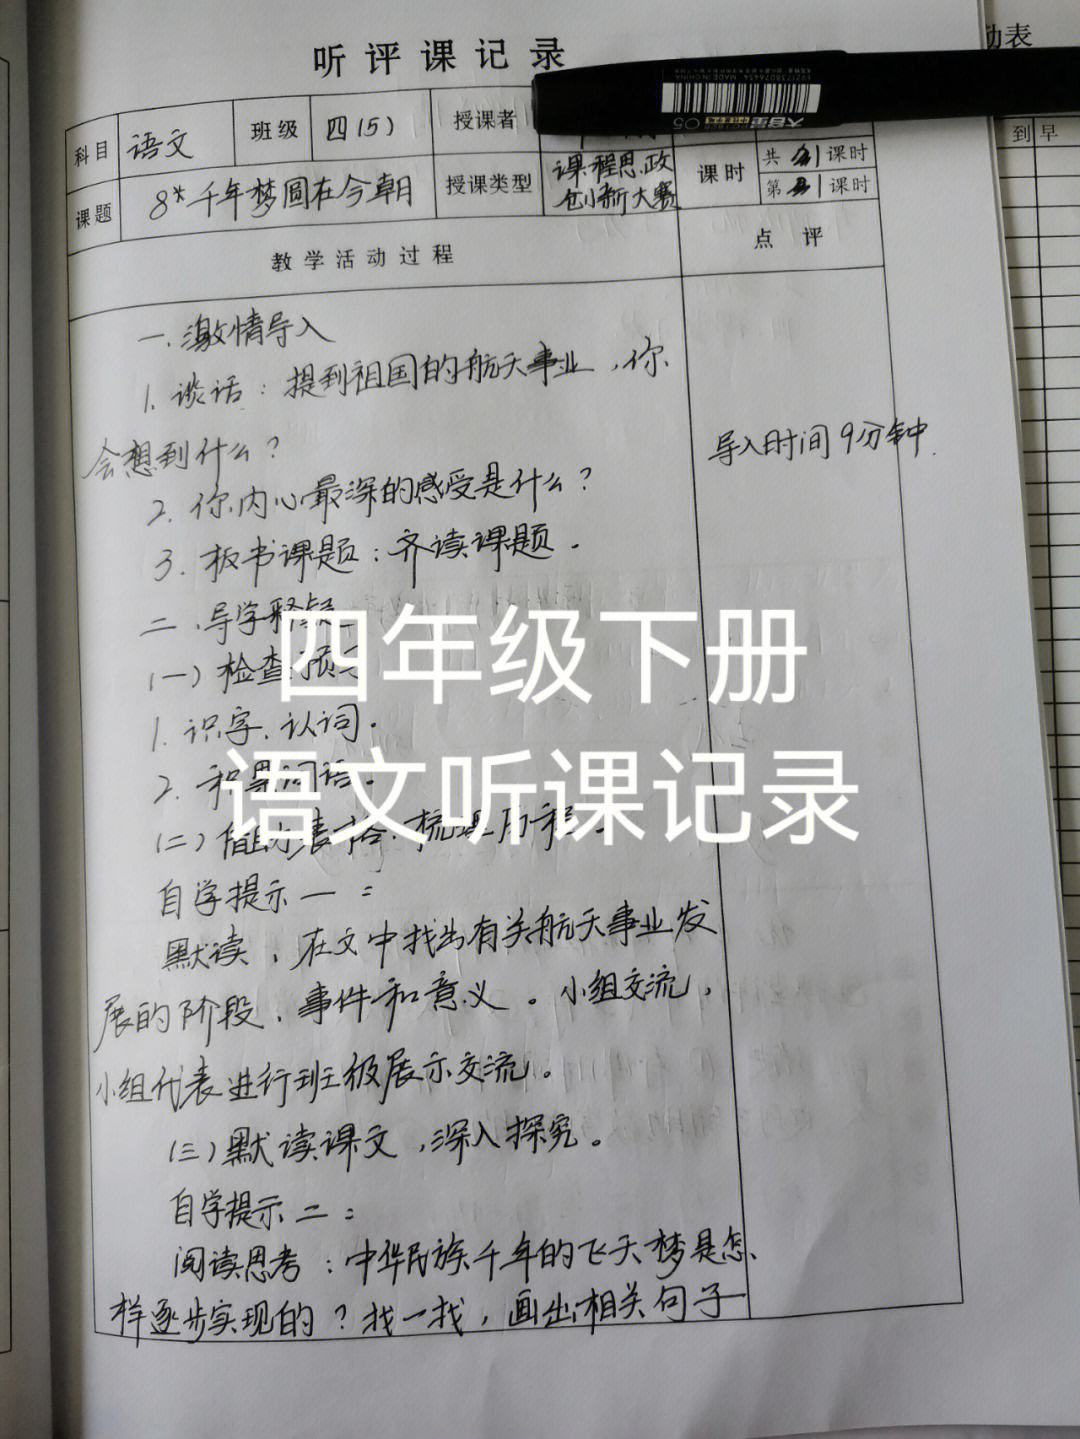 动表
听评课记录
科目 语文 班级 四(5) 授课者
课题 8* 千年梦圆在今朝 授课类型 课程思政创新大赛 课时 共 1 课时
第 1 课时
到 早
教学活动过程 点评
一.激情导入
1. 谈话:提到祖国的航天事业,你
会想到什么?
导入时间9分钟.
2. 你内心最深的感受是什么?
3. 板书课题:齐读课题.
二.导学释疑
四年级下册
(一)检查预习
1. 识字、认词.
2. 积累词语.
语文听课记录
(二)借助表格,梳理历程.
自学提示一:
默读,在文中找出有关航天事业发
展的阶段、事件和意义。小组交流,
小组代表进行班级展示交流。
(三)默读课文,深入探究。
自学提示二:
阅读思考:中华民族千年的飞天梦是怎
样逐步实现的?找一找,画出相关句子